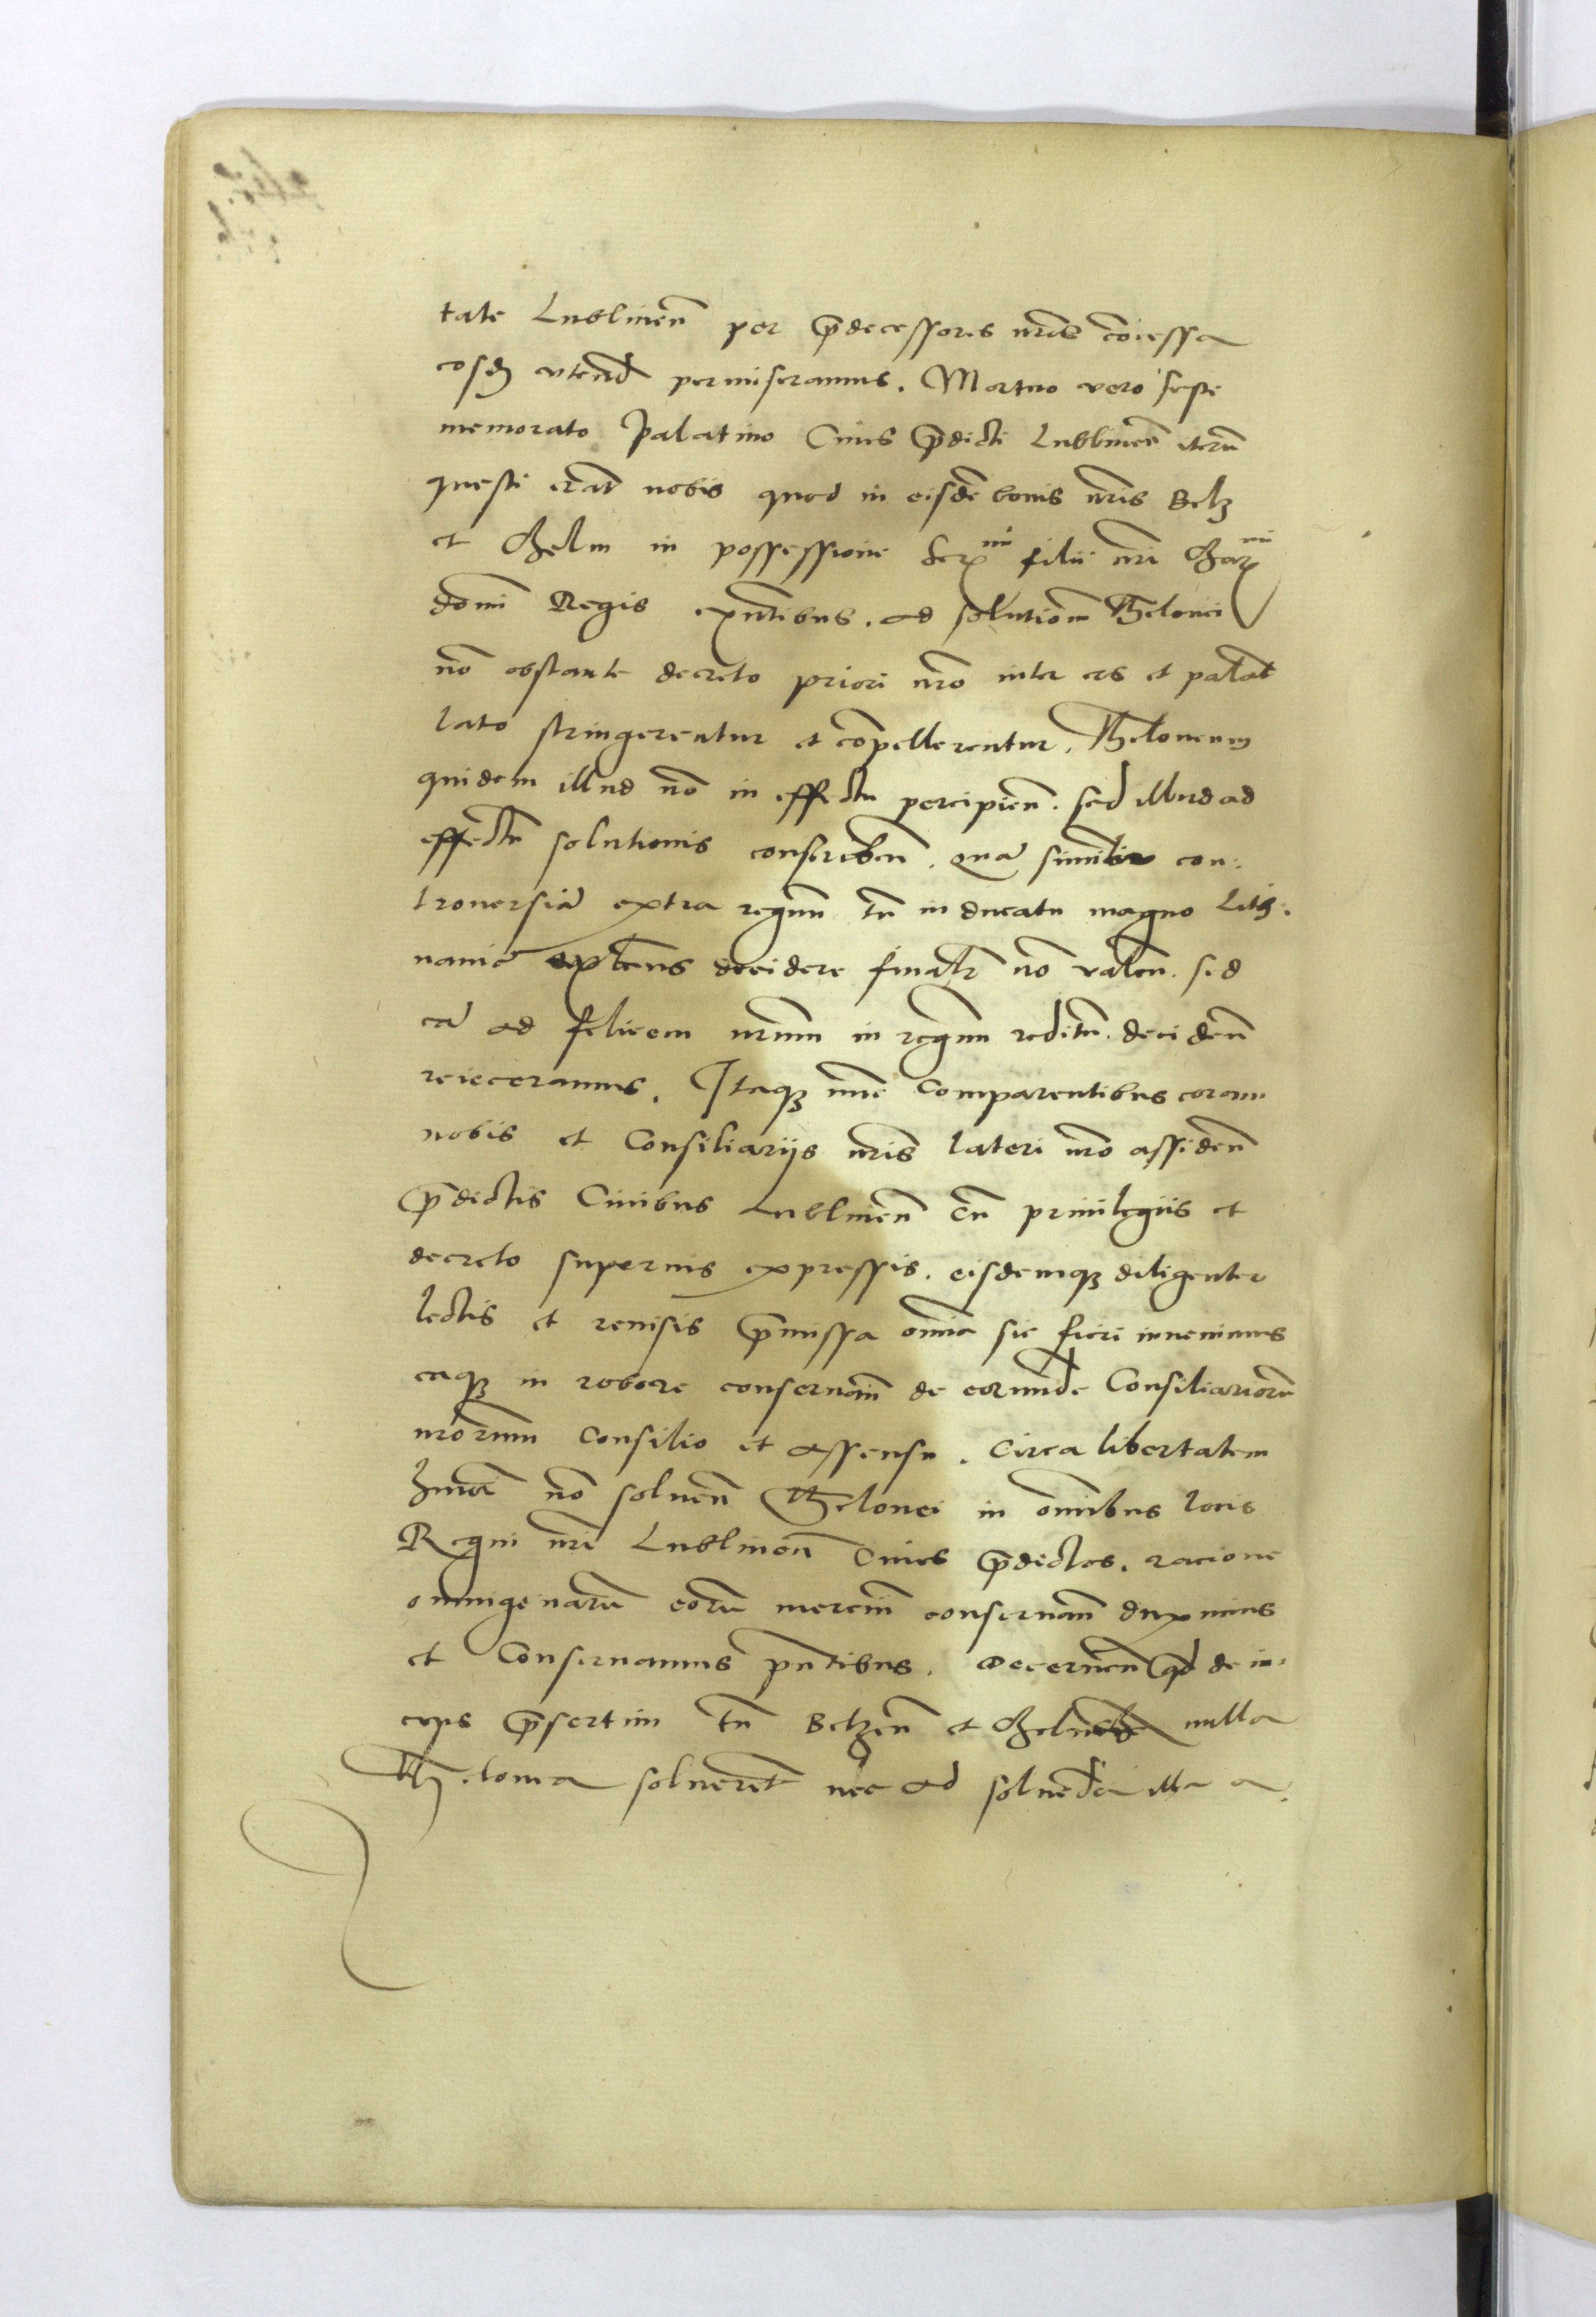 tate Lublineñ per p̄decessores nr̄os cōcessa
eosd̄ utend̄ permiseramus. Mortuo vero sepe
memorato Palatino Cives p̄dicti Lublineñ iterū
questi erāt nobis quod in eisdē bonis nr̄is Belz
et Chelm in possessione Ser^mi filii nr̄i Char^mi
domī Regis exn̄tibus. ad solutionem Thelonei
nō obstante decreto priori nr̄o inter eos et palat̄
lato stringerentur et cōpellerentur. Theloneum
quidem illud nō in effectu percipieñ. sed illud ad
effectū solutionis conscribeñ. quā similr̄ con.
troversiā extra regnum tū in ducatu magno Lith.
vanie existeñs decidere finalr̄ nō valeñ. sed
eā ad felicem nr̄um in regnum reditū. decideñ
reieceramus. Itaqȝ nūc Comparentibus coram
nobis et Consiliariis nr̄is lateri nr̄o assideñ
p̄dictis Civibus Lublineñ cū privilegiis et
decreto superius expressis. eisdemqȝ diligenter
lectis et revisis p̄missa om̄ia sic fieri invenimus
eaqȝ in robore conservañ de eorundē Consiliariorū
nr̄orum Consilio et assensu. Circa libertatem
hmōi nō solveñ Thelonei in om̄ibus locis
Regni nr̄i Lublineñ Cives p̄dictos. racione
omnigenarū eorū merciū conservañ duximus
et Conservamus pn̄tibus. Decerneñ qd̄ dein.
ceps p̄sertim tū Belzeñ et Chelmeñ nulla
Thelonea solverēt nec ad solvēda illa a.